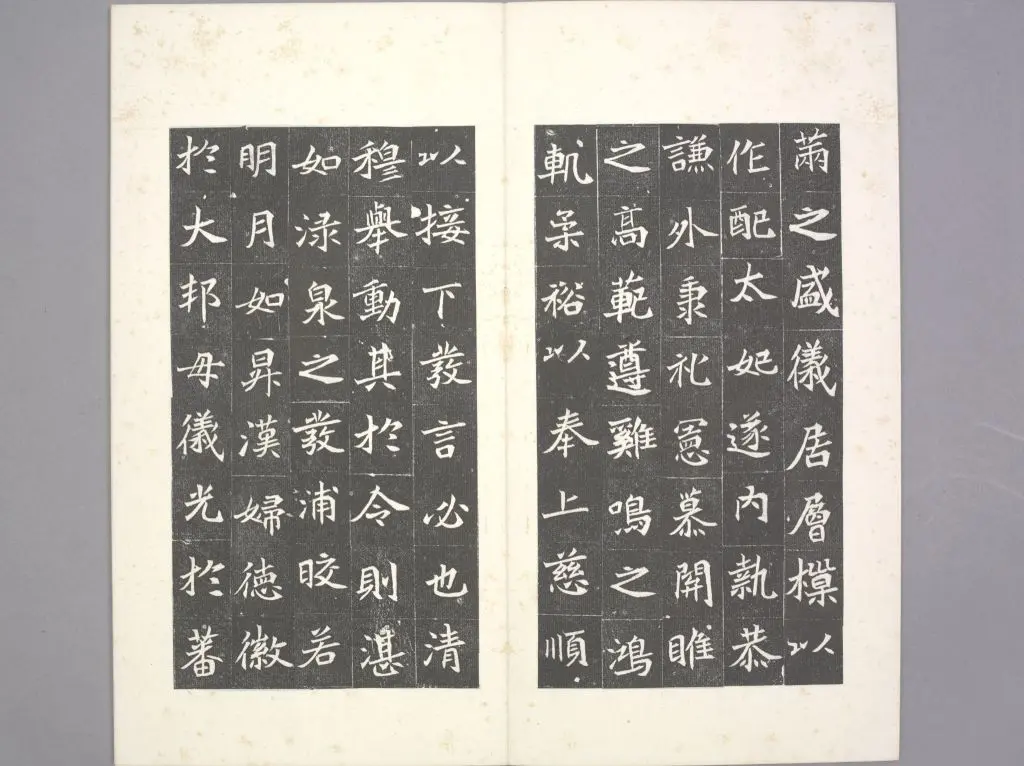 肅之盛儀居層樸以
作配太妃遂内執恭
謙外秉礼憲慕開睢
之高範遵雞鳴之鴻
軌柔裕以奉上慈順
以接下發言必也清
穆舉動其於令則湛
如淥泉之發浦晈若
明月如昇漢婦德徽
於大邦母儀光於蕃